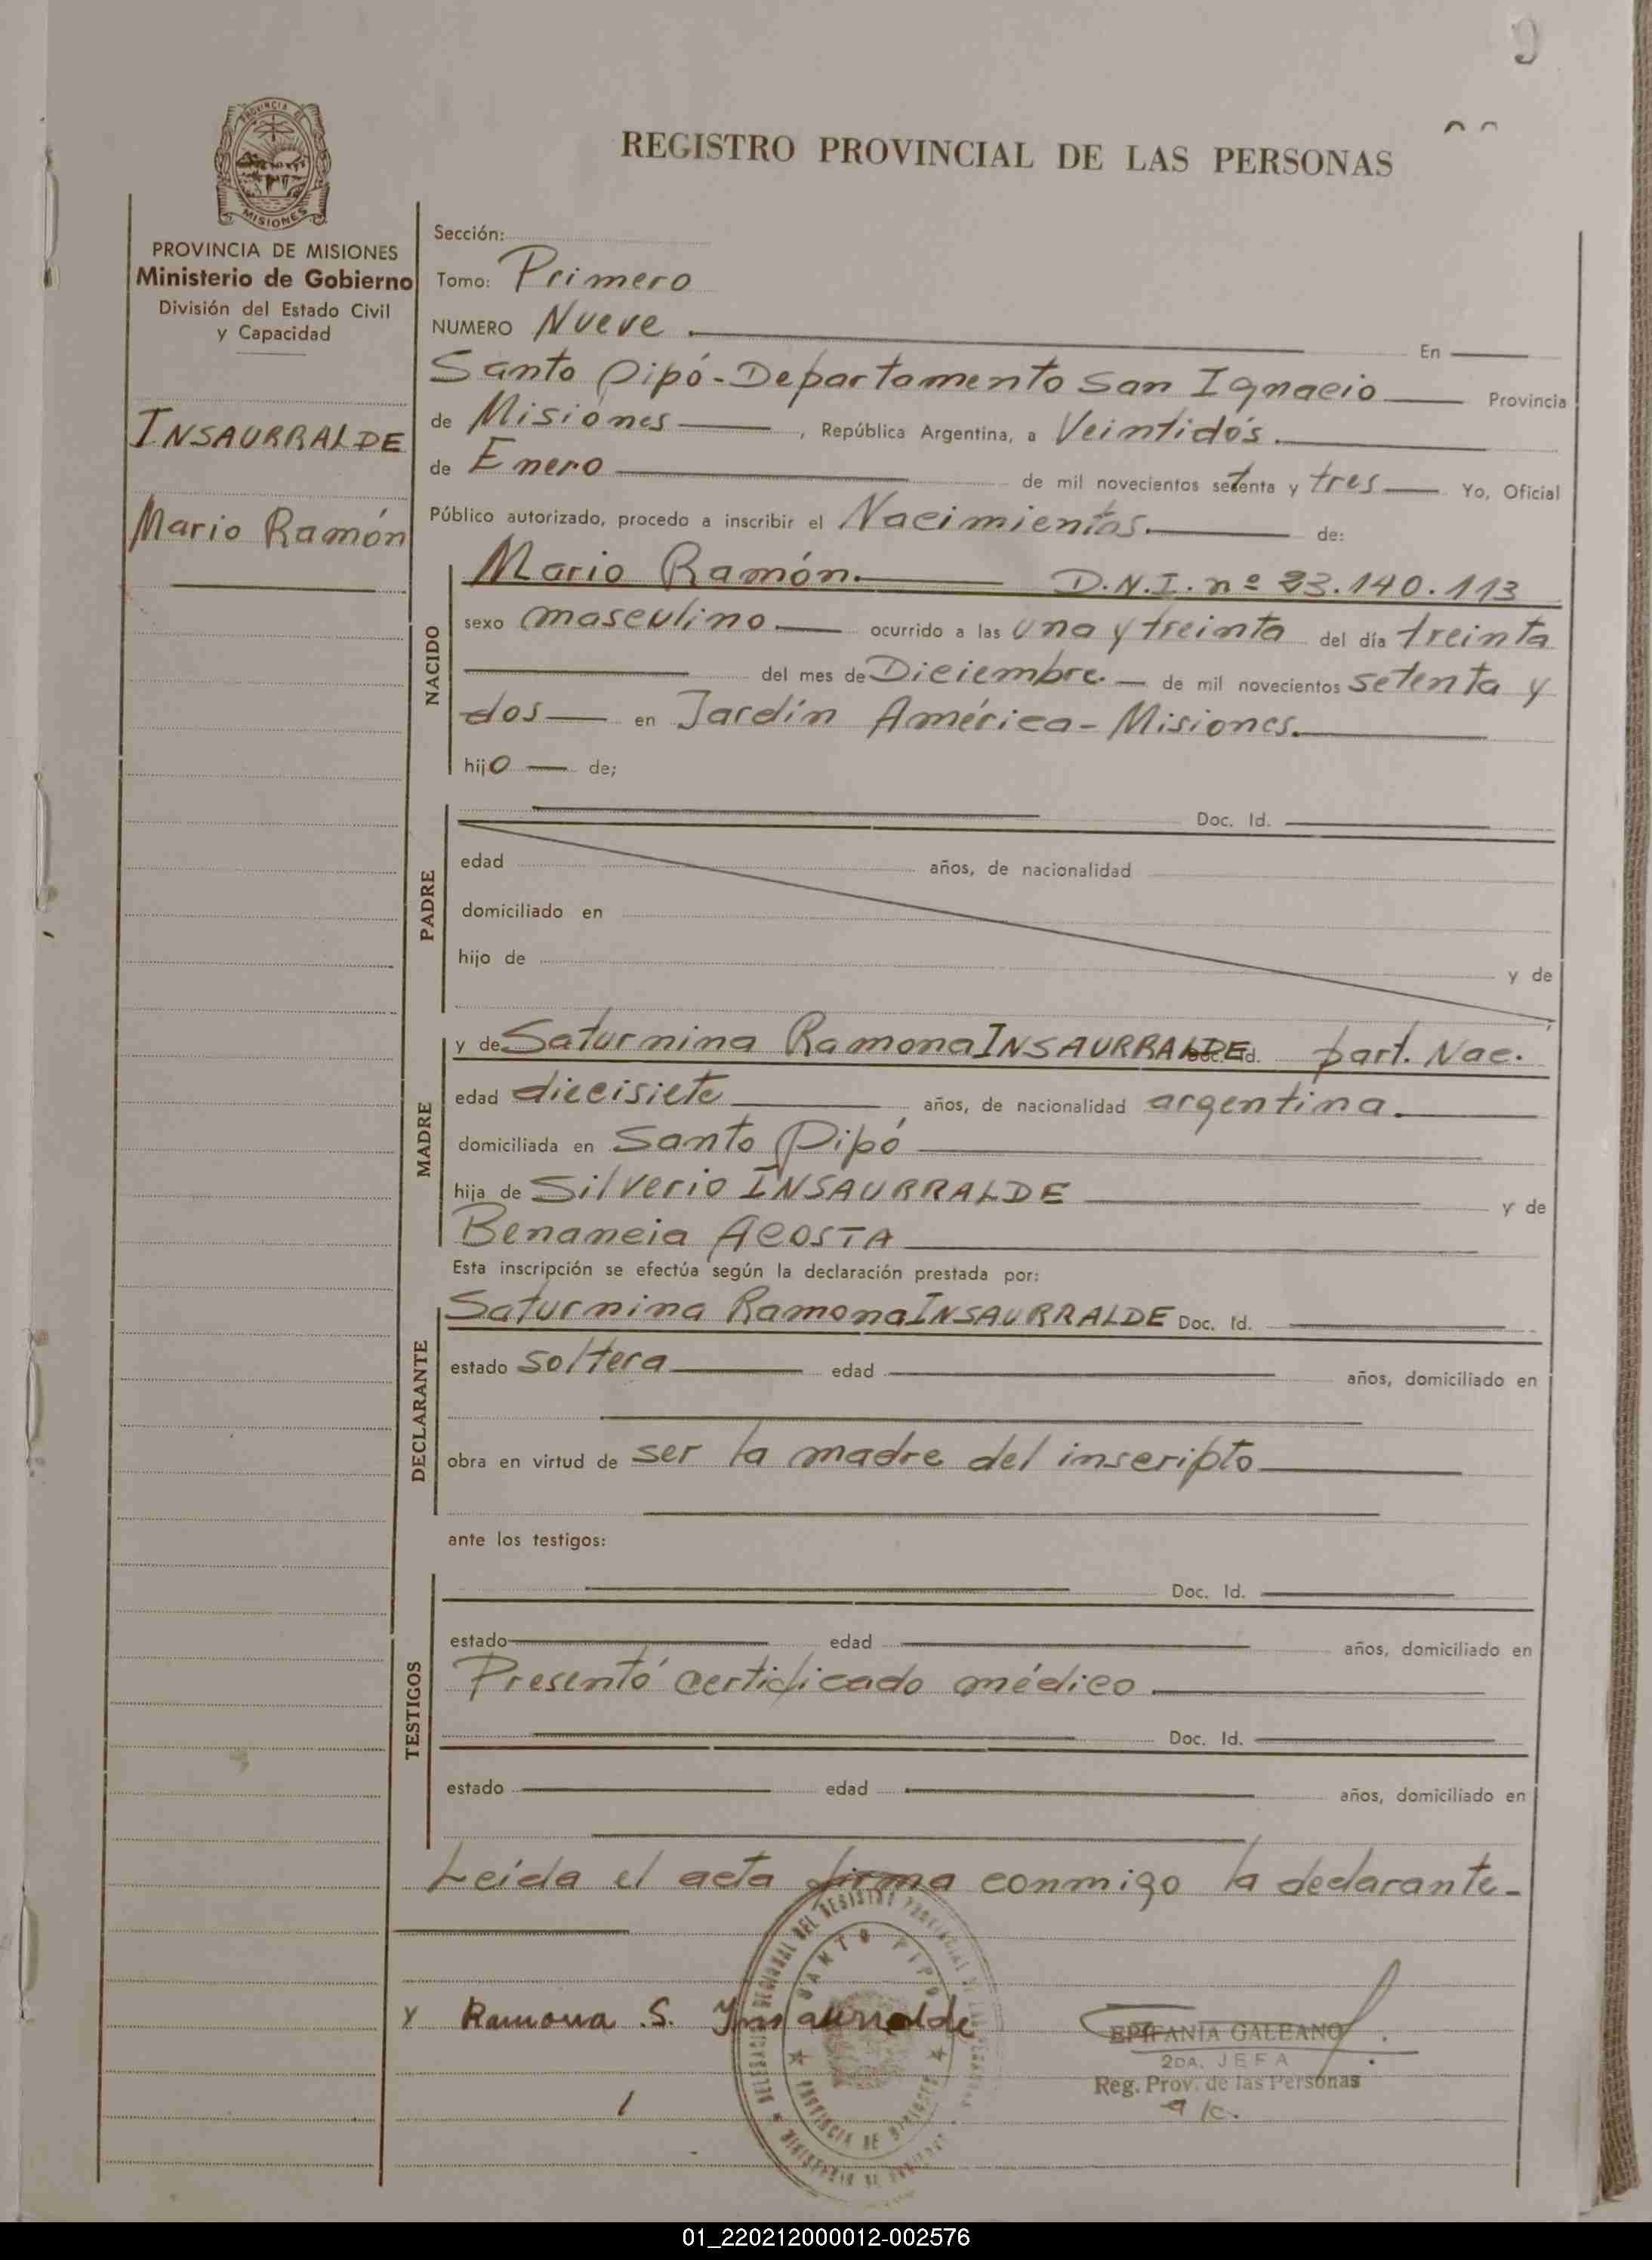 REGISTRO PROVINCIAL DE LAS PERSONAS
PROVINCIA DE MISIONES
Ministerio de Gobierno
División del Estado Civil
y Capacidad
INSAURRALDE
Mario Ramón
Sección:
Tomo: Primero
NUMERO Nueve. En
Santo Pipó - Departamento San Ignacio Provincia
de Misiones, República Argentina, a Veintidós.
de Enero de mil novecientos setenta y tres Yo, Oficial
Público autorizado, procedo a inscribir el Nacimientos. de:
NACIDO
Mario Ramón. D.N.I. nº 23.140.113
sexo masculino ocurrido a las una y treinta del día treinta
del mes de Diciembre. de mil novecientos setenta y
dos en Jardín América - Misiones.
hijo de;
PADRE
Doc. Id.
edad años, de nacionalidad
domiciliado en
hijo de y de
MADRE
y de Saturnina Ramona INSAURRALDE Doc. Id. part. Nac.
edad diecisiete años, de nacionalidad argentina.
domiciliada en Santo Pipó
hija de Silverio INSAURRALDE y de
Benancia ACOSTA
Esta inscripción se efectúa según la declaración prestada por:
DECLARANTE
Saturnina Ramona INSAURRALDE Doc. Id.
estado soltera edad años, domiciliado en
obra en virtud de ser la madre del inscripto
ante los testigos:
TESTIGOS
Doc. Id.
estado edad años, domiciliado en
Presentó certificado médico
Doc. Id.
estado edad años, domiciliado en
Leída el acta firma conmigo la declarante-
Y Ramona S. Insaurralde
SANTO PIPO
PROVINCIA DE MISIONES
EPIFANIA GALEANO
2DA. JEFA
Reg. Prov. de las Personas
a/c.
01_220212000012-002576